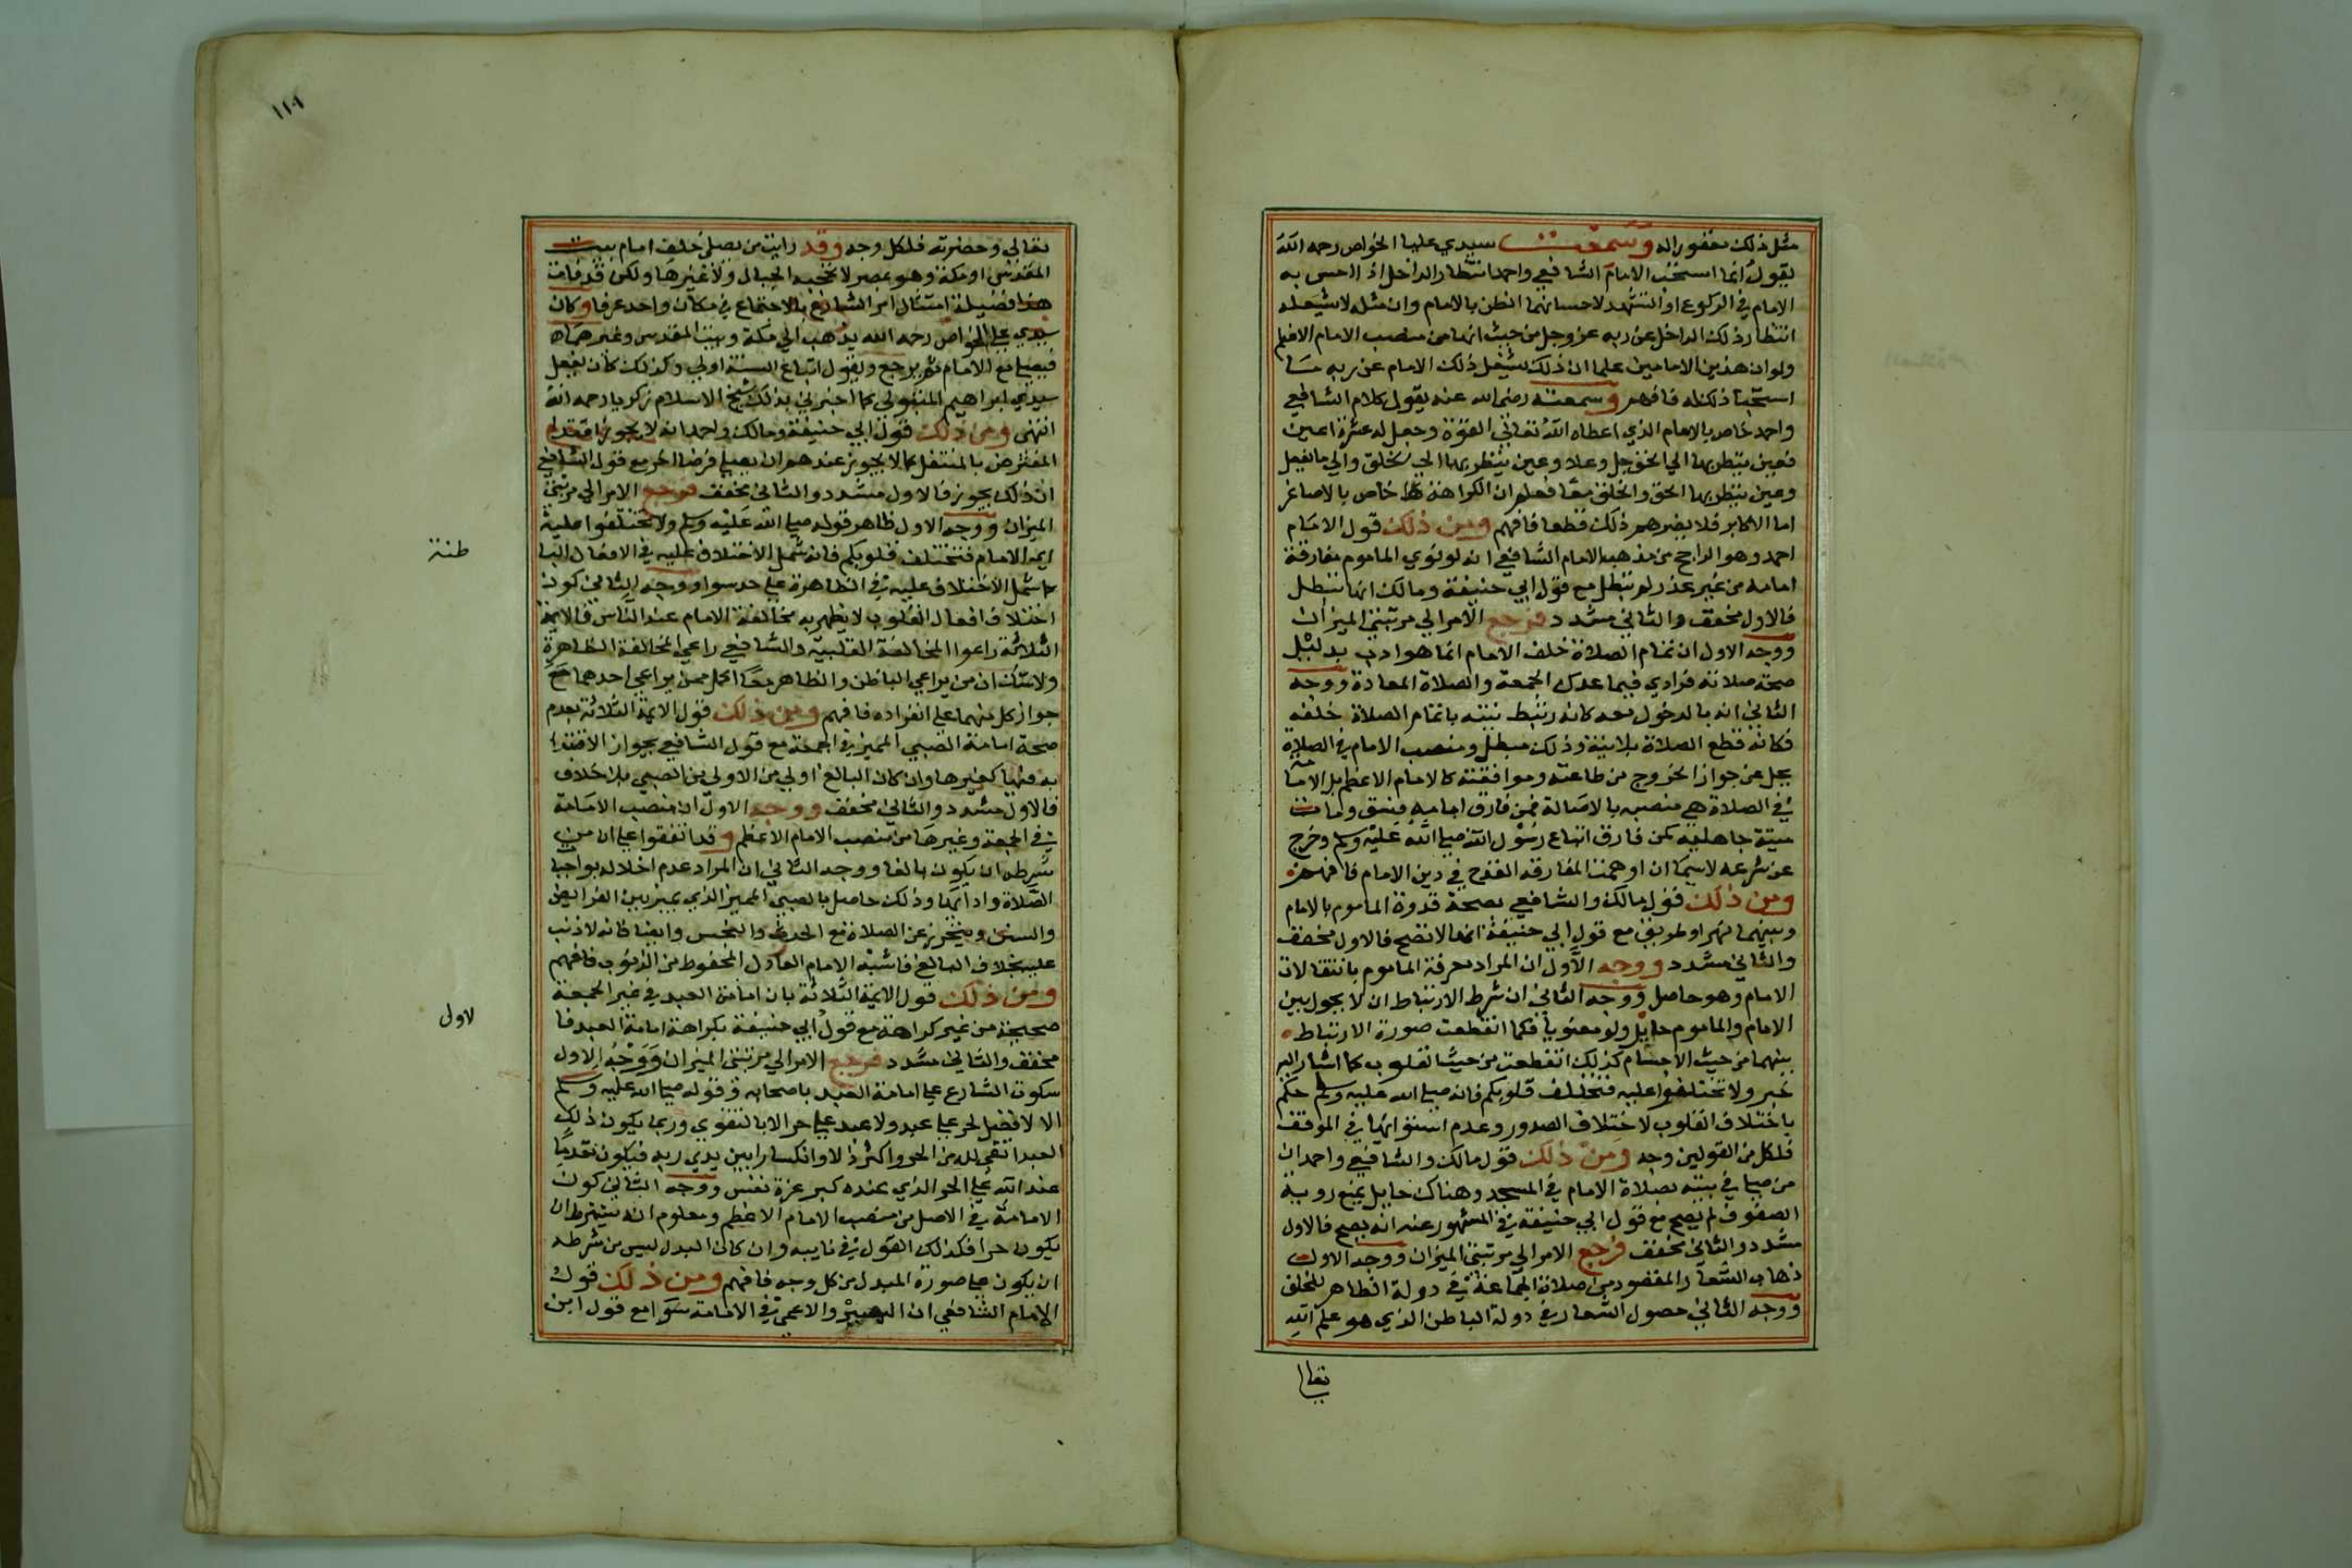 مثل ذلك مغفور له وسمعت سيدي عليا الخواص رحمه الله
يقول انما استحب الامام الشافعي واحمد انتظار الداخل اذا احس به
الامام في الركوع او التشهد لاحسانهما الظن بالامام وان مثله لا يشغله
انتظار ذلك الداخل عن ربه عز وجل من حيث انها من منصب الامام الاعظم
ولو ان هذين الامامين علما ان ذلك يشغل ذلك الامام عن ربه ما
استحبا ذلك له فافهم وسمعته رضي الله عنه يقول كلام الشافعي
واحمد خاص بالامام الذي اعطاه الله تعالى القوة وجعل له عشرة اعين
فعين ينظر بها الي الحق جل وعلا وعين ينظر بها الي الخلق والي ما يفعل
وعين ينظر بها الحق والخلق معا فعلم ان الكراهة خاص بالاصاغر
اما الاكابر فلا يضرهم ذلك قطعا فافهم ومن ذلك قول الامام
احمد وهو الراجح من مذهب الامام الشافعي انه لو نوي الماموم مفارقة
امامه من غير عذر لم تبطل مع قول ابي حنيفة ومالك انها تبطل
فالاول مخفف والثاني مشدد فرجع الامر الي مرتبتي الميزان
ووجه الاول ان تمام الصلاة خلف الامام انما هو ادب بدليل
صحة صلاته فرادي فيما عدي الجمعة والصلاة المعادة ووجه
الثاني انه بالدخول معه كانه ربط نيته باتمام الصلاة خلفه
فكانه قطع الصلاة بلا نية وذلك مبطل ومنصب الامام في الصلاة
يجل عن جواز الخروج من طاعته وموافقته كالامام الاعظم بل الامامة
في الصلاة هي منصبه بالاصالة فمن فارق امامه فسق ومات
ميتة جاهلية كمن فارق اتباع رسول الله صلي الله عليه وسلم وخرج
عن شرعه لاسيما ان اوهمت المفارقة القدح في دين الامام فافهم
ومن ذلك قول مالك والشافعي بصحة قدوة الماموم بالامام
وبينهما نهر او طريق مع قول ابي حنيفة انها لا تصح فالاول مخفف
والثاني مشدد ووجه الاول ان المراد معرفة الماموم بانتقالات
الامام وهو حاصل ووجه الثاني ان شرط الارتباط ان لا يحول بين
الامام والماموم حايل ولو معنويا فكما انقطعت صورة الارتباط
بينهما من حيث الاجسام كذلك انقطعت من حيث القلوب كما اشار اليه
خبر ولا تختلفوا عليه فتختلف قلوبكم فانه صلي الله عليه وسلم حكم
باختلاف القلوب لاختلاف الصدور وعدم استوائها في الموقف
فلكل من القولين وجه ومن ذلك قول مالك والشافعي واحمد ان
من صلي في بيته بصلاة الامام في المسجد وهناك حايل يمنع روية
الصفوف لم يصح مع قول ابي حنيفة في المشهور عنه انه يصح فالاول
مشدد والثاني مخفف فرجع الامر الي مرتبتي الميزان ووجه الاول
ذهاب الشعار المقصود من صلاة الجماعة في دولة الظاهر للخلق
ووجه الثاني حصول الشعار في دولة الباطن الذي هو علم الله
تعالي
تعالي وحضرته فلكل وجه وقد رايت من يصلي خلف امام بيت
المقدس او مكة وهو بمصر لا تحجبه الجبال ولا غيرها ولكن قد فات
هذا فضيلة امتثال امر الشارع بالاجتماع في مكان واحد عرفا وكان
سيدي علي الخواص رحمه الله يذهب الي مكة وبيت المقدس وغيرهما
فيصلي مع الامام ثم يرجع ويقول اتباع السنة اولي وكذلك كان يفعل
سيدي ابراهيم المتبولي كما اخبرني بذلك شيخ الاسلام زكريا رحمه الله
انتهي ومن ذلك قول ابي حنيفة ومالك واحمد انه لا يجوز اقتداء
المفترض بالمتنفل كما لا يجوز عندهم ان يصلي فرضا اخر مع قول الشافعي
ان ذلك يجوز فالاول مشدد والثاني مخفف فرجع الامر الي مرتبتي
الميزان ووجه الاول ظاهر قوله صلي الله عليه وسلم ولا تختلفوا عليه
اي الامام فتختلف قلوبكم فانه شمل الاختلاف عليه في الافعال البا
طنة
كما شمل الاختلاف عليه في الظاهرة علي حد سوا ووجه الثاني كون
اختلاف افعال القلوب لا يظهر به مخالفة الامام عند الناس فالايمة
الثلاثة راعوا المخالفة القلبية والشافعي راعي المخالفة الظاهرة
ولا شك ان من يراعي الباطن والظاهر معا اكمل ممن يراعي احدهما مع
جواز كل منهما علي انفراده فافهم ومن ذلك قول الايمة الثلاثة بعدم
صحة امامة الصبي المميز في الجمعة مع قول الشافعي بجواز الاقتدا
به فيها كغيرها وان كان البالغ اولي من الاولي من الصبي بلا خلاف
فالاول مشدد والثاني مخفف ووجه الاول ان منصب الامامة
في الجمعة وغيرها من منصب الامام الاعظم وقد اتفقوا علي ان من
شرطه ان يكون بالغا ووجه الثاني ان المراد عدم اخلاله بواجبا
الصلاة وادابها وذلك حاصل بالصبي المميز الذي يميز بين الفرايض
والسنن ويتحرز عن الصلاة مع الحدث والنجس وايضا فانه لا ذنب
عليه بخلاف البالغ فاشبه الامام العادل المحفوظ من الذنوب فافهم
ومن ذلك قول الايمة الثلاثة بان امامة العبد في غير الجمعة
صحيحة من غير كراهة مع قول ابي حنيفة بكراهة امامة العبد فا
لاول
مخفف والثاني مشدد فرجع الامر الي مرتبتي الميزان ووجه الاول
سكوت الشارع علي امامة العبد باصحابه وقوله صلي الله عليه وسلم
الا لا فضل لحر علي عبد ولا عبد علي حر الا بالتقوي وربما يكون ذلك
العبد اتقي لله من الحر واكثر ذلا وانكسارا بين يدي ربه فيكون مقدما
عند الله علي الحر الذي عنده كبر عزة نفس ووجه الثاني كون
الامامة في الاصل من منصب الامام الاعظم ومعلوم انه يشترط ان
يكون حرا فكذلك القول في نايبه وان كان البدل ليس من شرطه
ان يكون علي صورة المبدل من كل وجه فافهم ومن ذلك قول
الامام الشافعي ان البصير والاعمي في الامامة سوا مع قول ابن